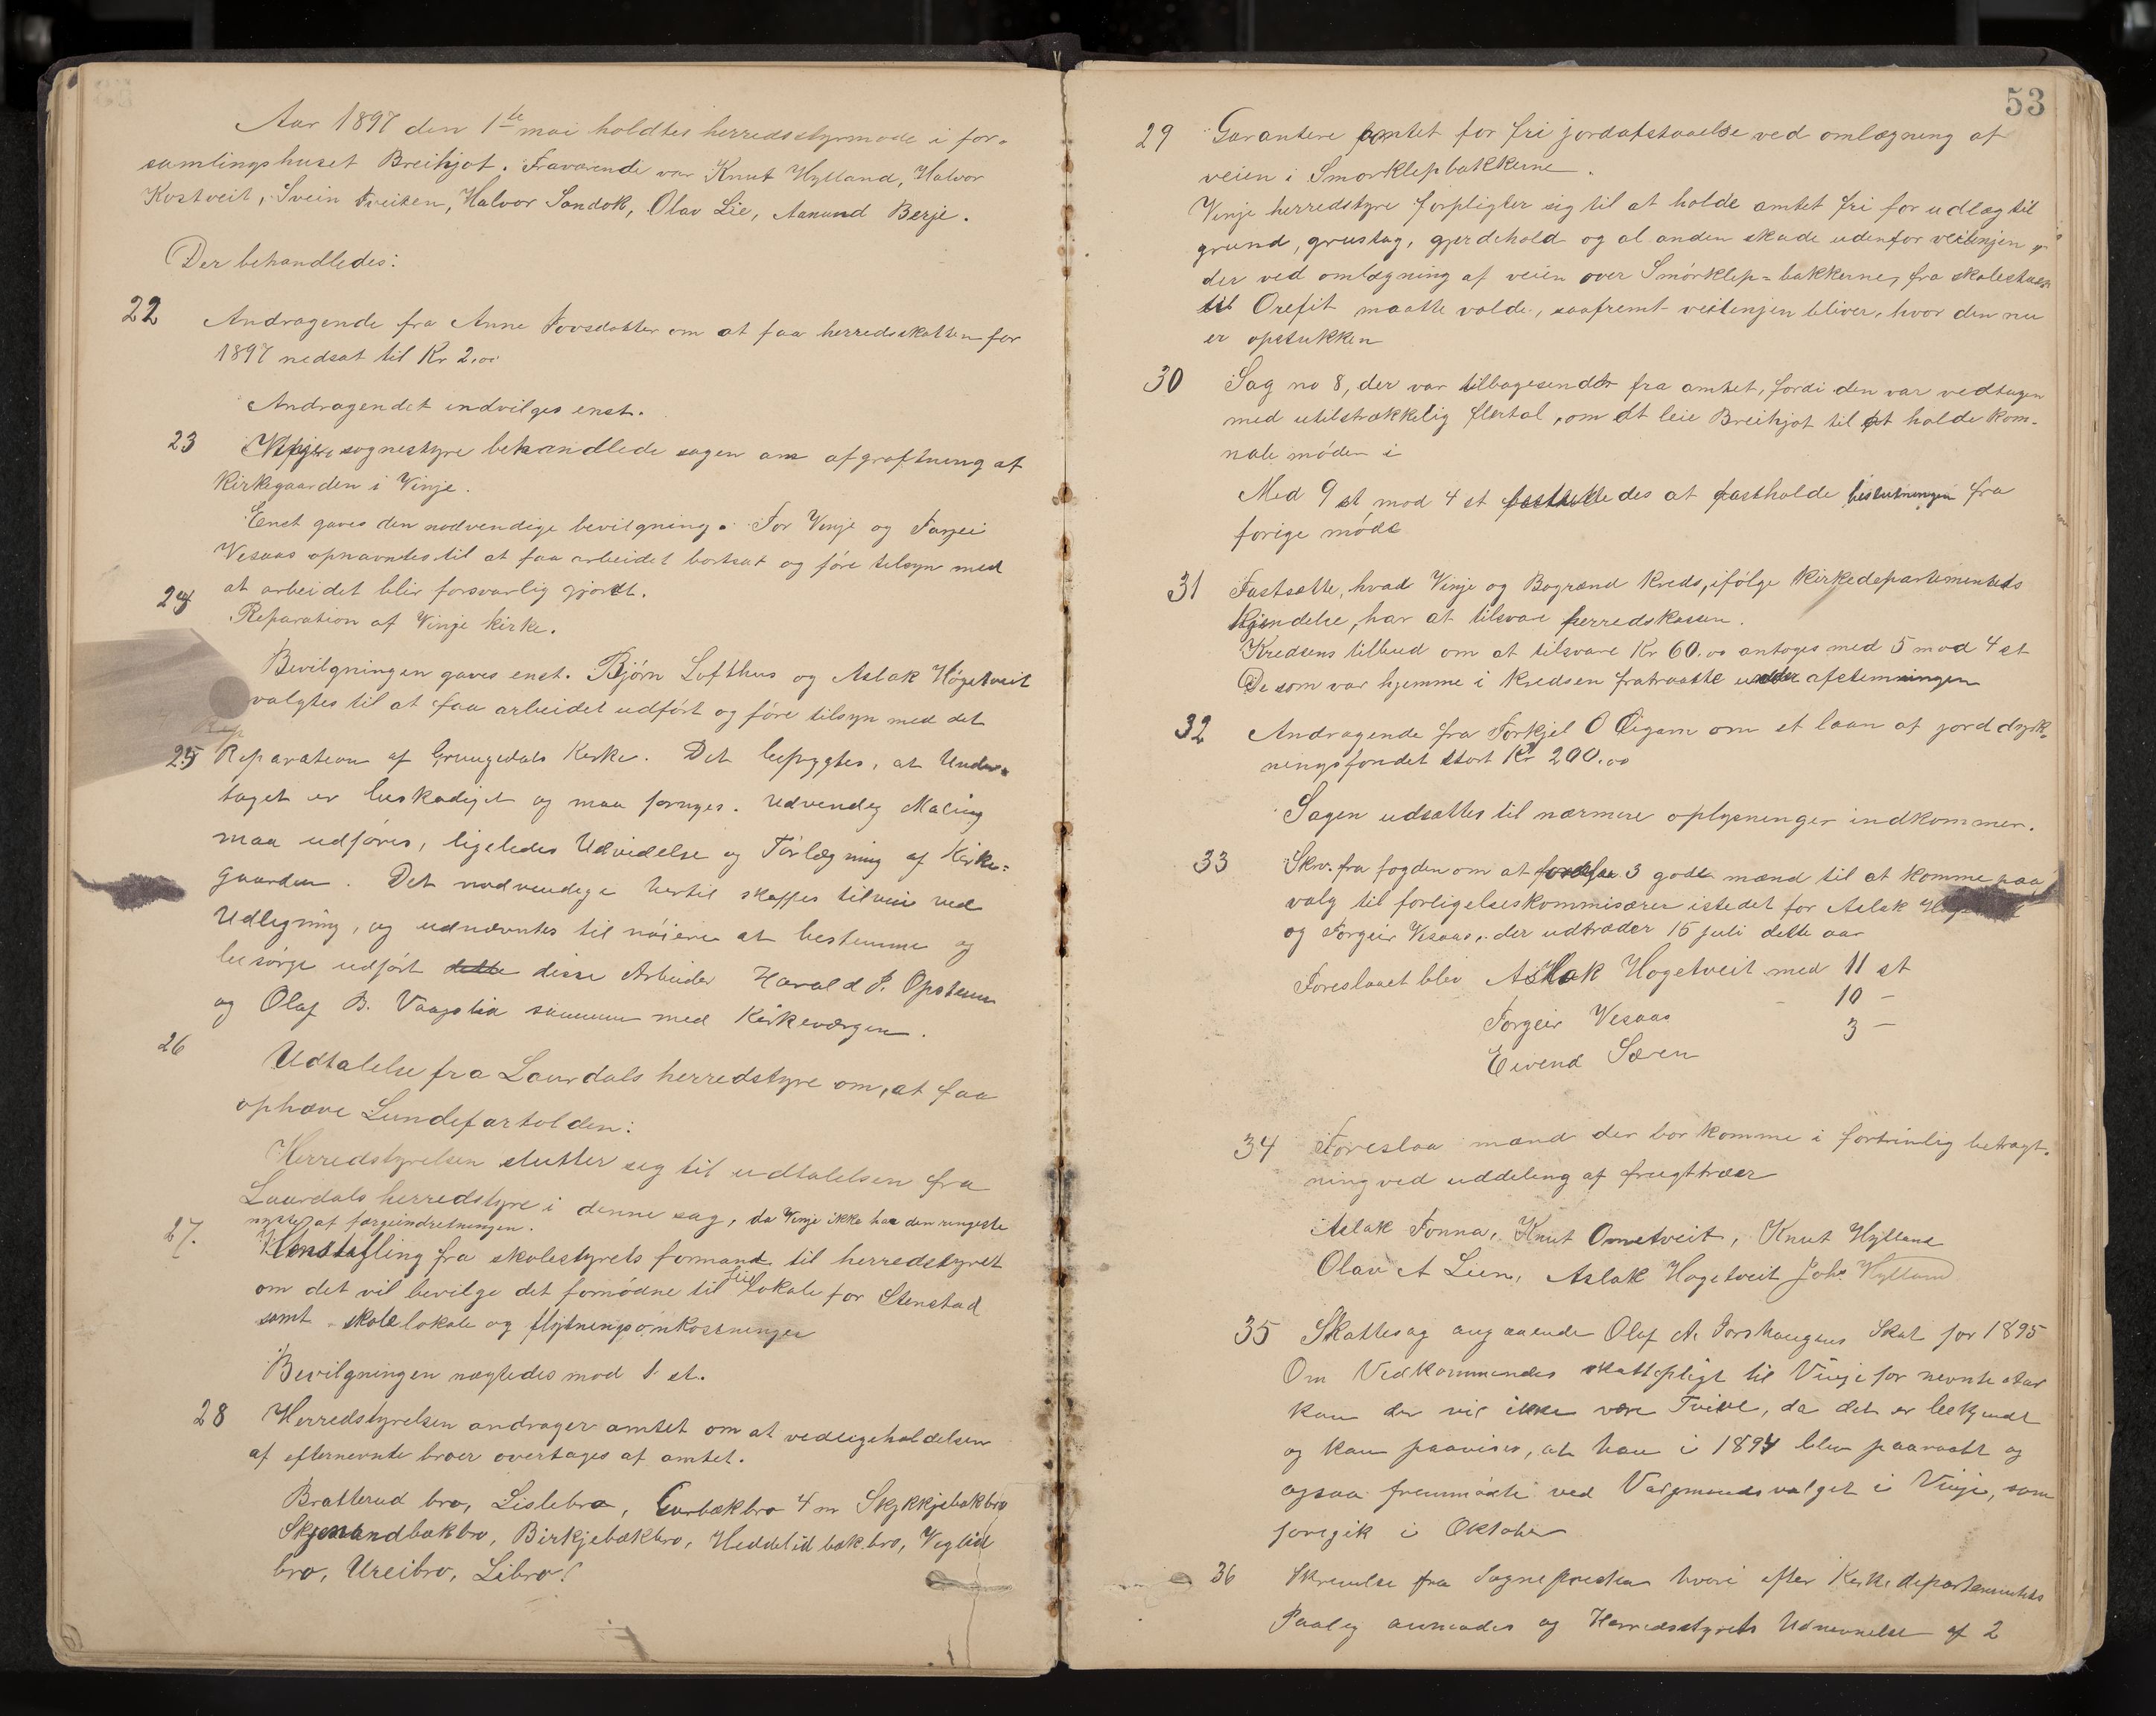 Aar 1897 den 1ste mai holdtes herredsstyrmøde i for-
samlingshuset Breihjot. Fraværende var Knut Hylland, Halvor
Kostveit, Svein Tveiten, Halvor Sandok, Olav Lie, Aanund Berje.
Der behandledes:
22 Andragende fra Anne Tovsdatter om at faa herredsskatten for
1897 nedsat til Kr 2.00
Andragendet indvilges enst.
23 Vinje sognestyre behandlede sagen om afgrøftning af
Kirkegaarden i Vinje.
Enst gaves den nødvendige bevilgning. Tor Vinje og Targei
Vesaas opnævntes til at faa arbeidet bortsat og føre tilsyn med
at arbeidet blir forsvarlig gjordt.
24 Reparation af Vinje kirke.
Bevilgningen gaves enst. Bjørn Lofthus og Aslak Høgetveit
valgtes til at faa arbeidet udført og føre tilsyn med det
25 Reparation af Grungedals Kirke. Det besigtes, at Under-
taget er beskadiget og maa fornyes. Udvendig Maling
maa udføres, ligeledes Udvidelse og Tørlægning af Kirke-
gaarden. Det nødvendige hertil skaffes tilveie ved
Udligning, og udnævntes til nøiere at bestemme og
besørge udført dette disse Arbeider Harald P. Opsteen
og Olaf B. Vaagslid sammen med Kirkeværgen.
26 Udtalelse fra Laurdals herredstyre om, at faa
ophæve Lundefartolden:
Herredstyrelsen slutter seg til udtalelsen fra
Laurdals herredstyre i denne sag, da Vinje ikke har den ringeste
nytte af færgeindretningen.
27. Henstilling fra skolestyrets formand til herredstyret
om det vil bevilge det fornødne til leie lokale for Stenstad
samt skolelokale og flytningsomkostninger
Bevilgningen nægtedes mod 1 st.
28 Herredstyrelsen andrager amtet om at vedligeholdelsen
af efternevnte broer overtages af amtet.
Bratterud bro, Lislebro, Gurbækbro 4 m Skjkkjebækbro
Skjesandbækbro, Birkjebækbro, Heddelid bæk.bro, Veglid
bro, Ureibro, Libro.
53
29 Garantere amtet for fri jordafstaaelse ved omlægning af
veien i Smørklepbakkerne.
Vinje herredstyre forpligter sig til at holde amtet fri for udlæg til
grund, grustag, gjerdehold og al anden skade udenfor veilinjen
der ved omlægning af veien over Smørklep-bakkerne, fra skolestuen
til Orefit maatte volde, saafremt veilinjen bliver, hvor den nu
er opstukken
30 Sag no 8, der var tilbagesendt fra amtet, fordi den var vedtagen
med utilstrækkelig flertal, om at leie Breihjot til at holde kom-
nale møder i
Med 9 st mod 4 st besluttedes at fastholde beslutningen fra
forige møde
31 Fastsætte, hvad Vinje og Bøgrænd kreds, ifølge kirkedepartementets
kjendelse, har at tilsvare herredskassen.
Kredsens tilbud om at tilsvare Kr 60.00 antoges med 5 mod 4 st
De som var hjemme i kredsen fratraatte under afstemningen
32 Andragende fra Torkjel O Eigarn om et laan af jorddyrk-
ningsfondet stort Kr 200.00
Sagen udsættes til nærmere oplysninger indkommer.
33 Skriv. fra fogden om at foreslaa 3 gode mænd til at komme paa
valg til forligelseskommisærer istedet for Aslak
og Torgeir Vesaas, der udtræder 15 juli dette aar
Foreslaaet blev Aslak Høgetveit med 11 st
Torgeir Vesaas - 10 -
Eivend Særen 3 -
34 Foreslaa mænd der bør komme i fortrinlig betragt-
ning ved uddeling af frugttrær
Aslak Tonna, Knut Omstveit, Knut Hylland
Olav A Lien, Aslak Høgetveit Johs Hylland
35 Skattesag angaaende Olaf A. Torshaugens Skat for 1895
Om Vedkommendes skattepligt til Vinje for nevnte Aar
kan der vis ikke være Tvivl, da det er bekjendt
og kan paavises, at han i 1894 blev paaraabt og
ogsaa fremmødte ved Valgmandsvalget i Vinje, som
foregik i Oktober
36 Skrivelse fra Sognepresten hvori efter Kirkedepartementets
Paalæg anmodes og Herredsstyrets Udnevnelse af 2